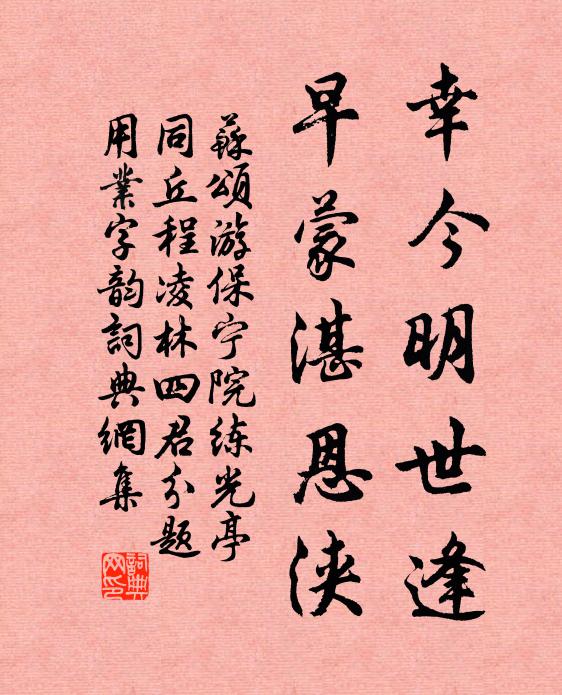 幸今明世逢
早蒙湛恩浹
蘇頌游保宁院练光亭
同丘程凌林四君分题
用業字韵詞典網集
詞典網印